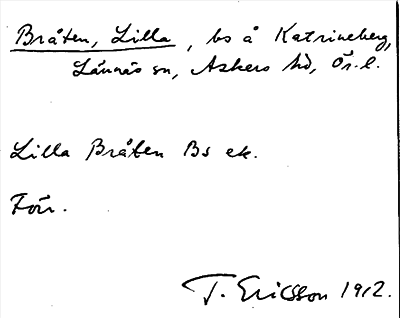 Bråten, Lilla, bs å Katrineberg,
Lännäs sn, Askers hd, Ör. l.
Lilla Bråten Bs ek.
Förr.
T. Ericsson 1912.